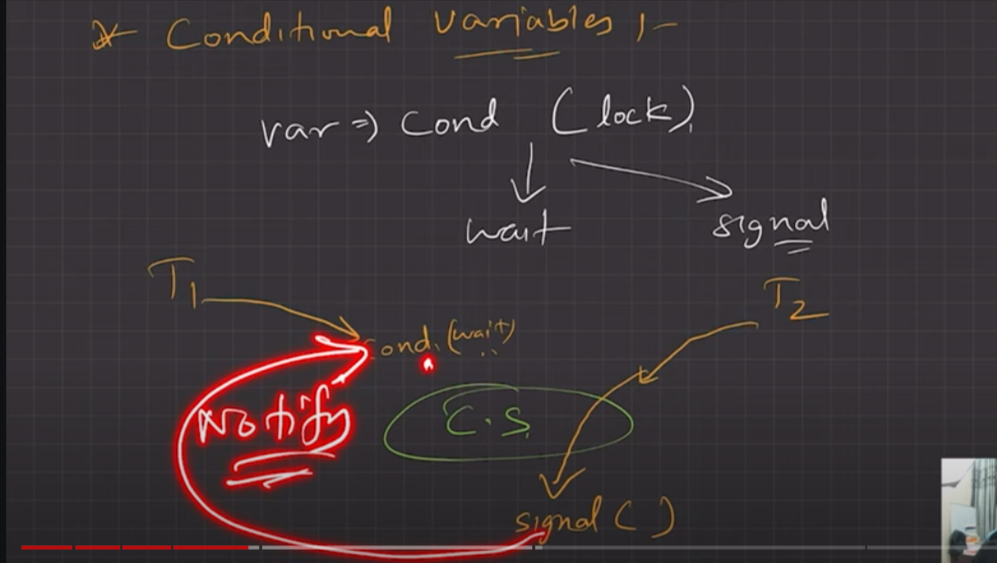 * Conditional Variables :-
var => Cond (lock)
wait signal
T1 T2
Cond.(wait)
Notify C.S
signal ( )